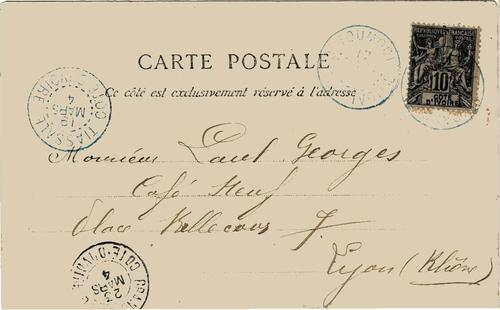 CARTE POSTALE
Ce côté est exclusivement réservé à l'adresse
RÉPUBLIQUE FRANÇAISE
10
CÔTE
D'IVOIRE
TOUMODI
17
TIASSALÉ CÔTE D'IVOIRE
MARS
4
Monsieur Paul Georges
Café Neuf
Place Bellecour 7
Lyon (Rhône)
GRAND
CÔTE-D'IVOIRE
23
MARS
4